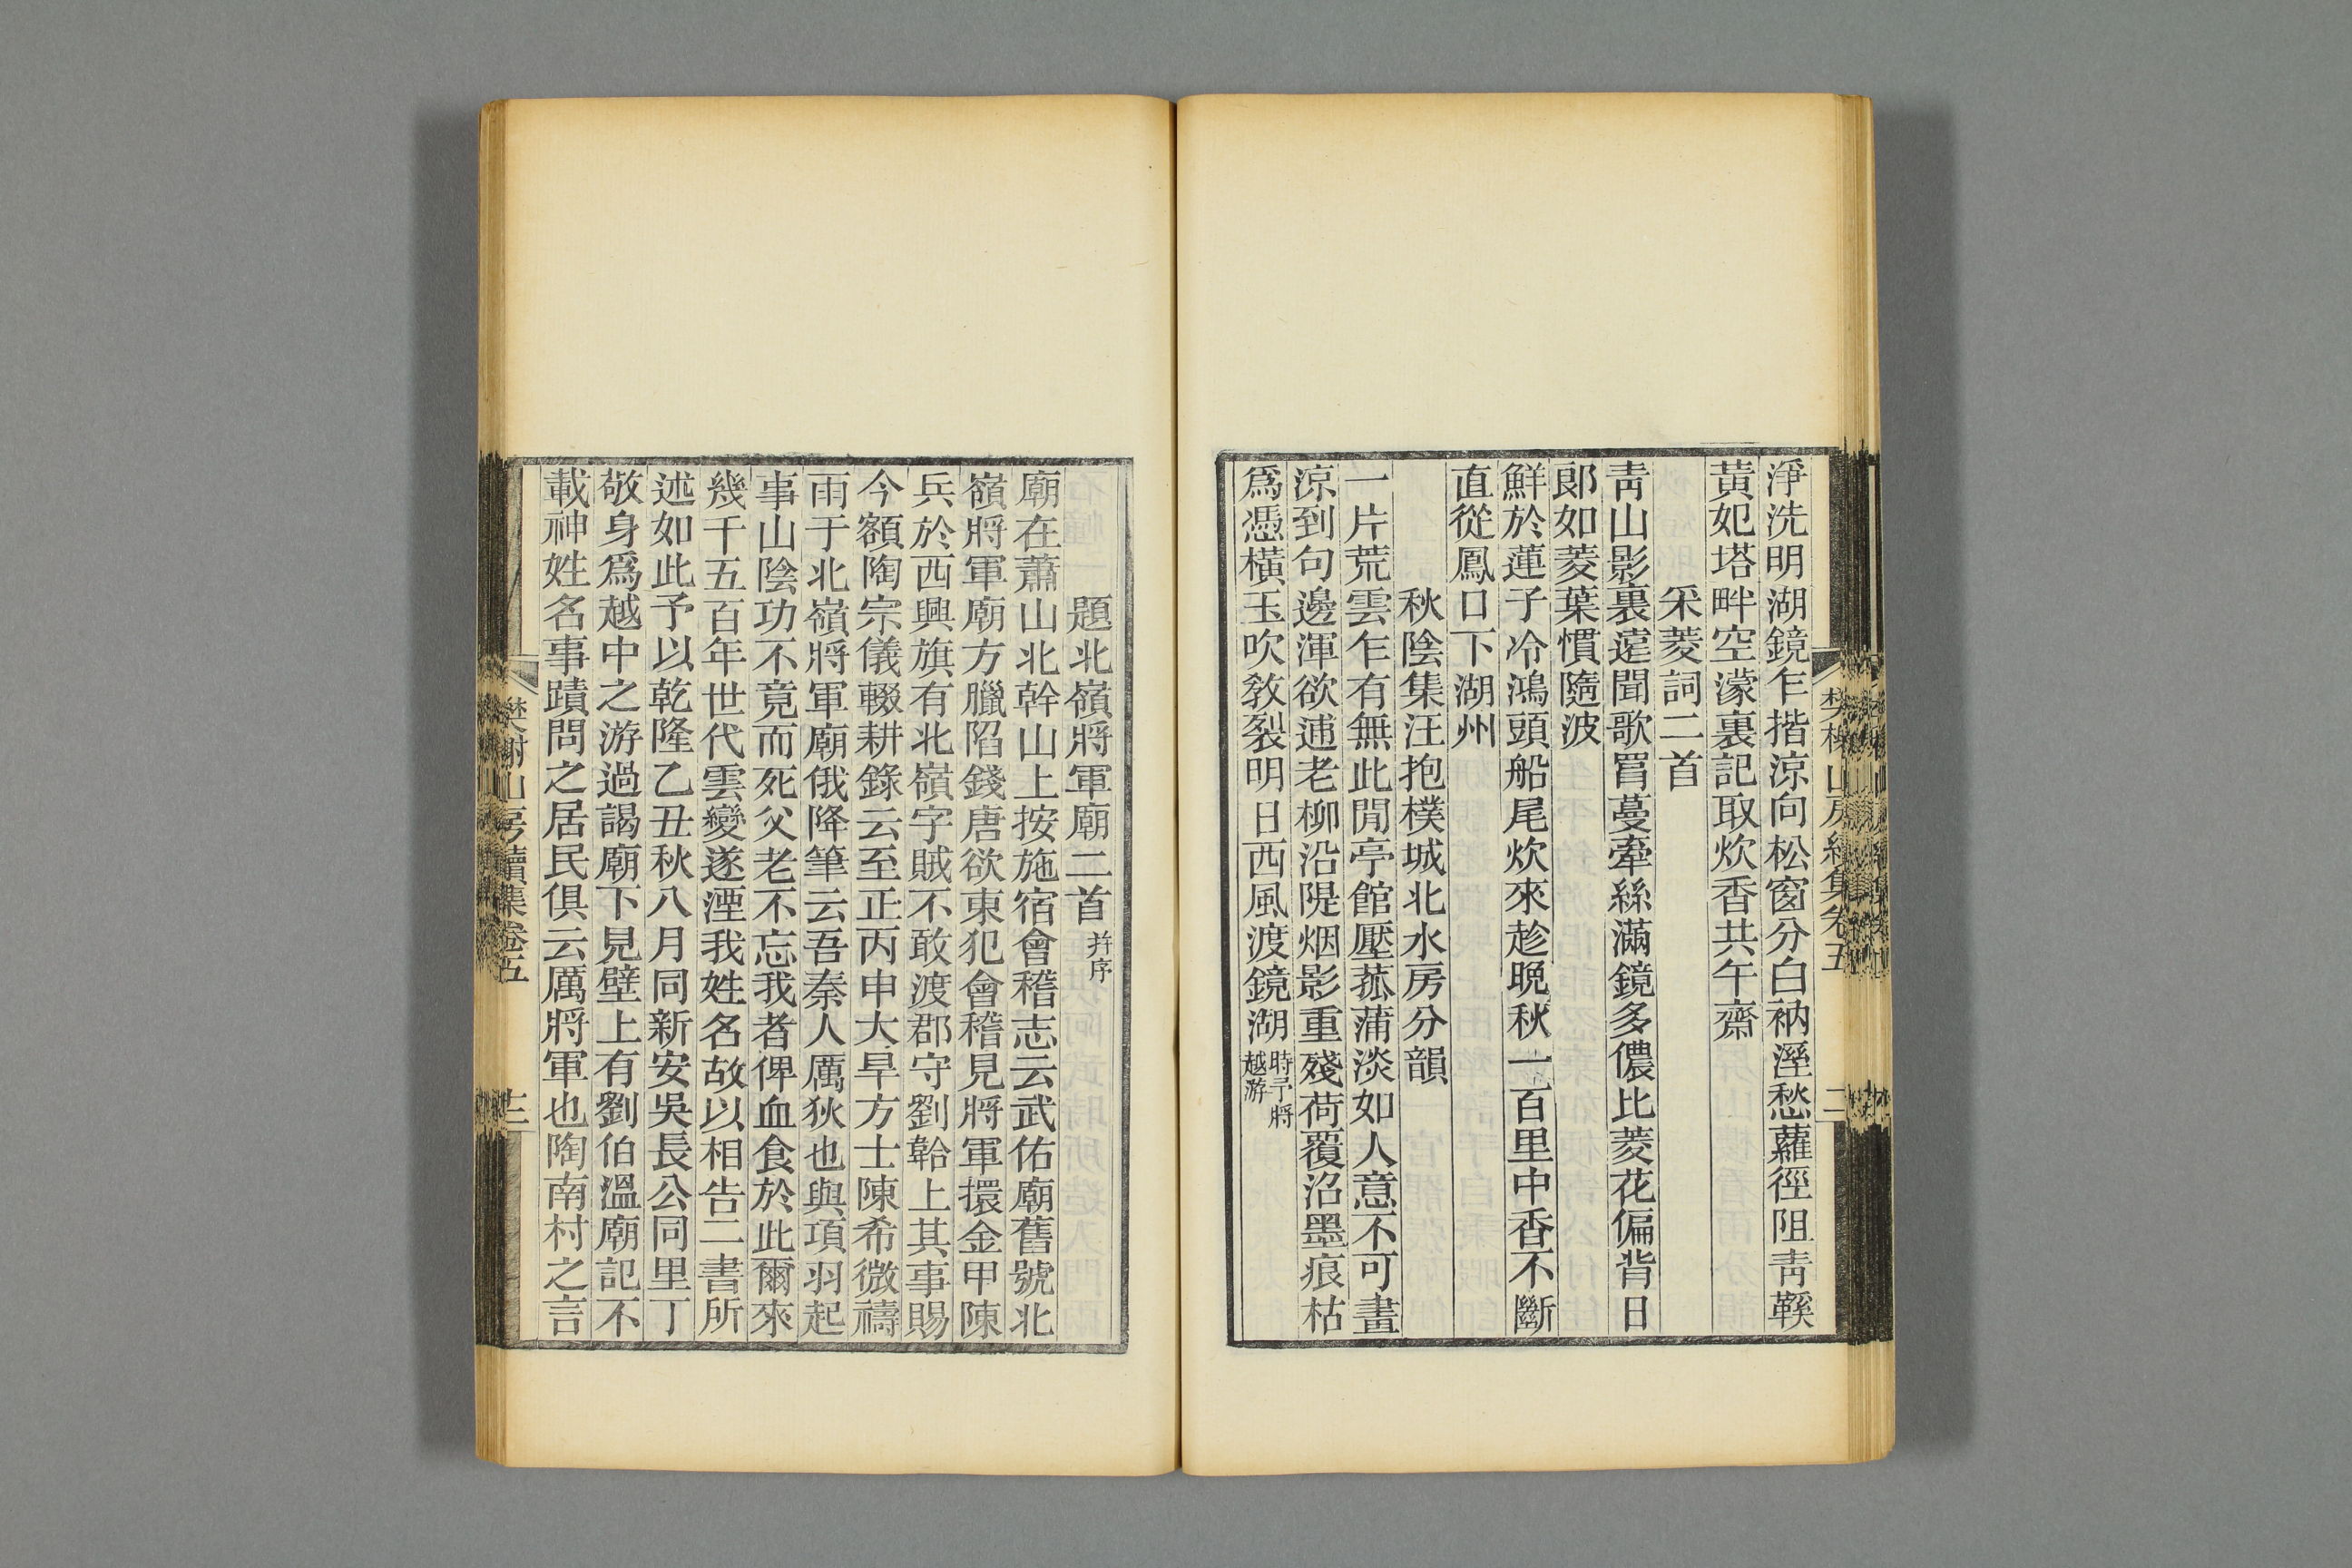 淨洗明湖鏡乍揩涼向松窗分白衲溼愁蘿徑阻靑鞵
黃妃塔畔空濛裏記取炊香共午齋
采菱詞二首
靑山影裏遠聞歌罥蔓牽絲滿鏡多儂比菱花偏背日
郞如菱葉慣隨波
鮮於蓮子冷鴻頭船尾炊來趁晚秋一百里中香不斷
直從鳳口下湖州
秋陰集汪抱樸城北水房分韻
一片荒雲乍有無此閒亭館壓菰蒲淡如人意不可畫
涼到句邊渾欲逋老柳沿隄烟影重殘荷覆沼墨痕枯
爲憑橫玉吹敎裂明日西風渡鏡湖時予將越游
題北嶺將軍廟二首幷序
廟在蕭山北幹山上按施宿會稽志云武佑廟舊號北
嶺將軍廟方臘陷錢唐欲東犯會稽見將軍擐金甲陳
兵於西興旗有北嶺字賊不敢渡郡守劉韐上其事賜
今額陶宗儀輟耕錄云至正丙申大旱方士陳希微禱
雨于北嶺將軍廟俄降筆云吾秦人厲狄也與項羽起
事山陰功不竟而死父老不忘我者俾血食於此爾來
幾千五百年世代雲變遂湮我姓名故以相告二書所
述如此予以乾隆乙丑秋八月同新安吳長公同里丁
敬身爲越中之游過謁廟下見壁上有劉伯溫廟記不
載神姓名事蹟問之居民俱云厲將軍也陶南村之言
樊榭山房續集卷五